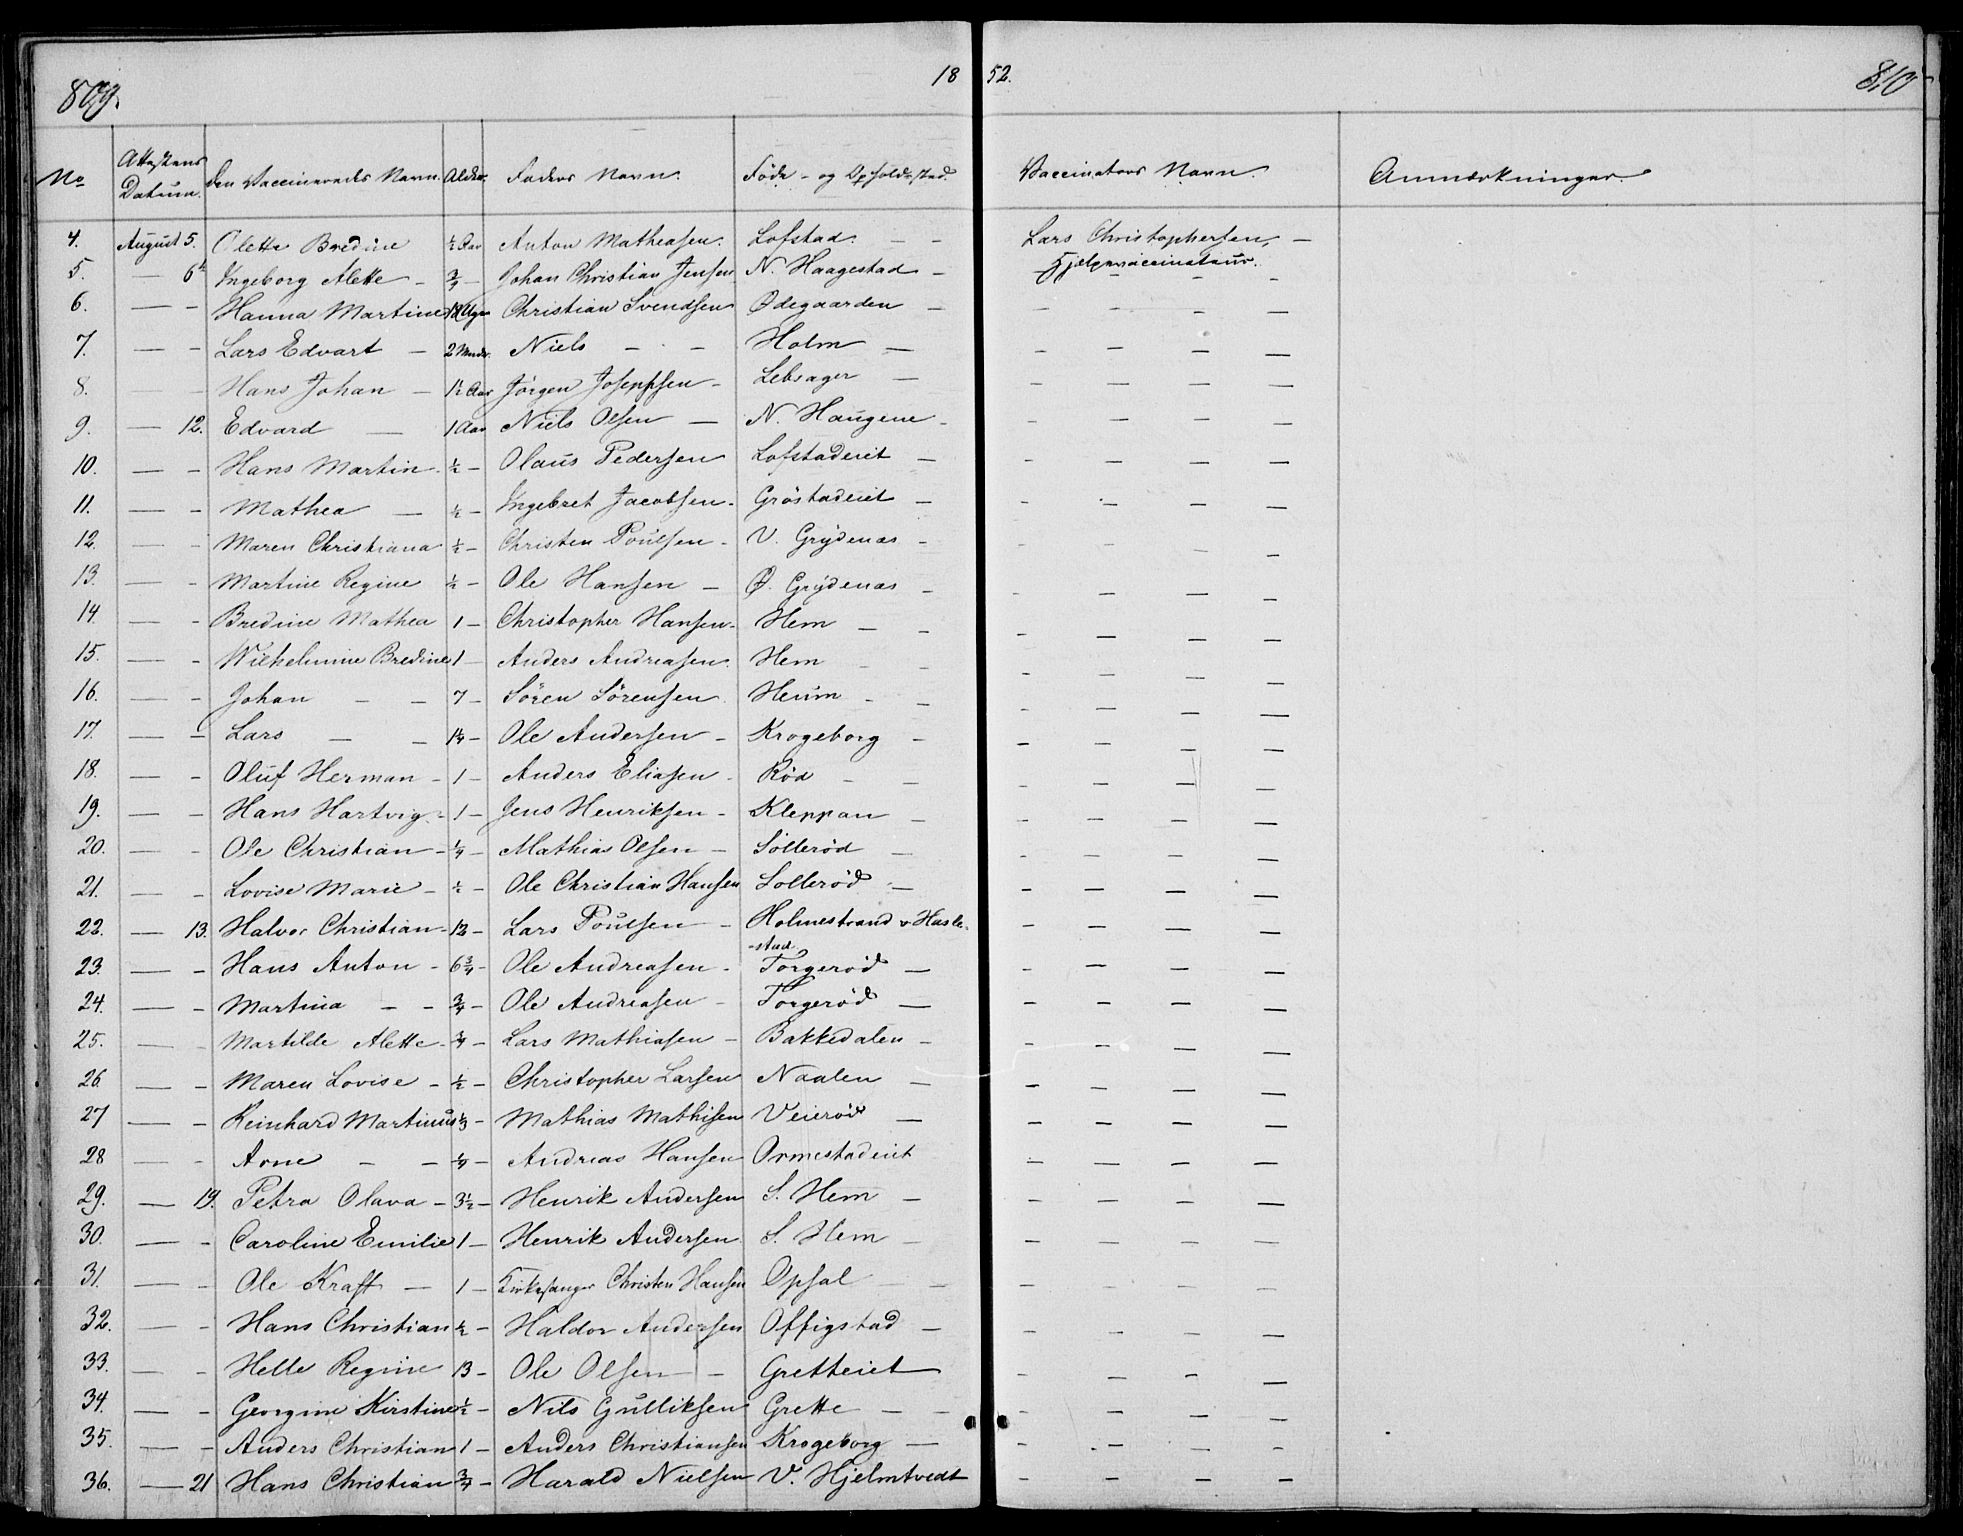 809.
18 52.
810
No
Attestens Datum.
Den Vaccineredes Navn.
Alder.
Faders Navn.
Føde- og Opholdssted.
Vaccinators Navn.
Anmærkninger.
4. August 5. Olette Bredine ½ Aar Anton Mathesen. Lofstad. — — Lars Christophersen, —
Hjelpevaccinateur.
5. — 6te Ingeborg Alette — ¾ — Johan Christian Jensen N. Haagestad — — — —
6. — — Hanna Martine 18 Uger Christian Svendsen Ødegaarden — — — — —
7. — — Lars Edvart — 2 Mndr. Niels — — Holm — — — — —
8. — — Hans Johan — 1½ Aar Jörgen Josephsen — Lebsager — — — — —
9. — 12. Edvard — 1 Aar Niels Olsen — N. Haugene — — — — —
10. — — Hans Martin ½ — Olaus Pedersen Lofstadeiet — — — — —
11. — — Mathea — ½ — Ingebret Jacobsen — Gröstadeiet — — — — —
12. — — Maren Christiana ½ — Christen Poulsen — V. Grydenæs — — — — —
13. — — Martine Regine ½ — Ole Hansen — Ø. Grydenæs — — — — —
14. — — Bredine Mathea 1 — Christopher Hansen — Hem — — — — — —
15. — — Wilhelmine Bredine 1 — Anders Andreasen. Hem — — — — — —
16. — — Johan — — 7 — Sören Sörensen Heum — — — — — —
17. — — Lars — — 1¼ — Ole Andersen — Krogeborg — — — — —
18. — — Oluf Herman — 1 — Anders Eliasen — Röd — — — — — —
19. — — Hans Hartvig — 1 — Jens Henriksen — Kleppan — — — — —
20. — — Ole Christian — ¼ — Mathias Olsen — Söllerød — — — — —
21. — — Lovise Marie — ½ — Ole Christian Hansen Sollerød — — — — —
22. — 13. Halvor Christian — 12 — Lars Poulsen — Holmestrand v Hasle- — — — —
-stad
23. — — Hans Anton — 6¾ — Ole Andreasen — Torgerød — — — — —
24. — — Martina — — ¾ — Ole Andreasen — Torgerød — — — — —
25. — — Martilde Alette — ¾ — Lars Mathiasen — Bakkedalen — — — — —
26 — — Maren Lovise — ½ — Christopher Larsen Naalen — — — — —
27 — — Reinhard Martinus ⅓ — Mathias Mathisen Veierød — — — — —
28 — — Arne — — ¼ — Andreas Hansen Ormestadeiet — — — —
29. — 19. Petra Olava — 3½ — Henrik Andersen S. Hem — — — — —
30. — — Caroline Emilie 1 — Henrik Andersen S. Hem — — — — —
31. — — Ole Kraft — 1 — Kirkesanger Christen Hansen Opsal — — — — — —
32. — — Hans Christian ½ — Haldor Andersen Offigstad — — — — —
33. — — Helle Regine 13 — Ole Olsen — Gretteiet — — — — —
34. — — Georgine Kirstine ½ — Nils Gulliksen Grette — — — — — —
35. — — Anders Christian 1 — Anders Christiansen Krogeborg — — — — —
36. — 21 Hans Christian ¾ — Harald Nielsen V. Hjelmtvedt — — — —